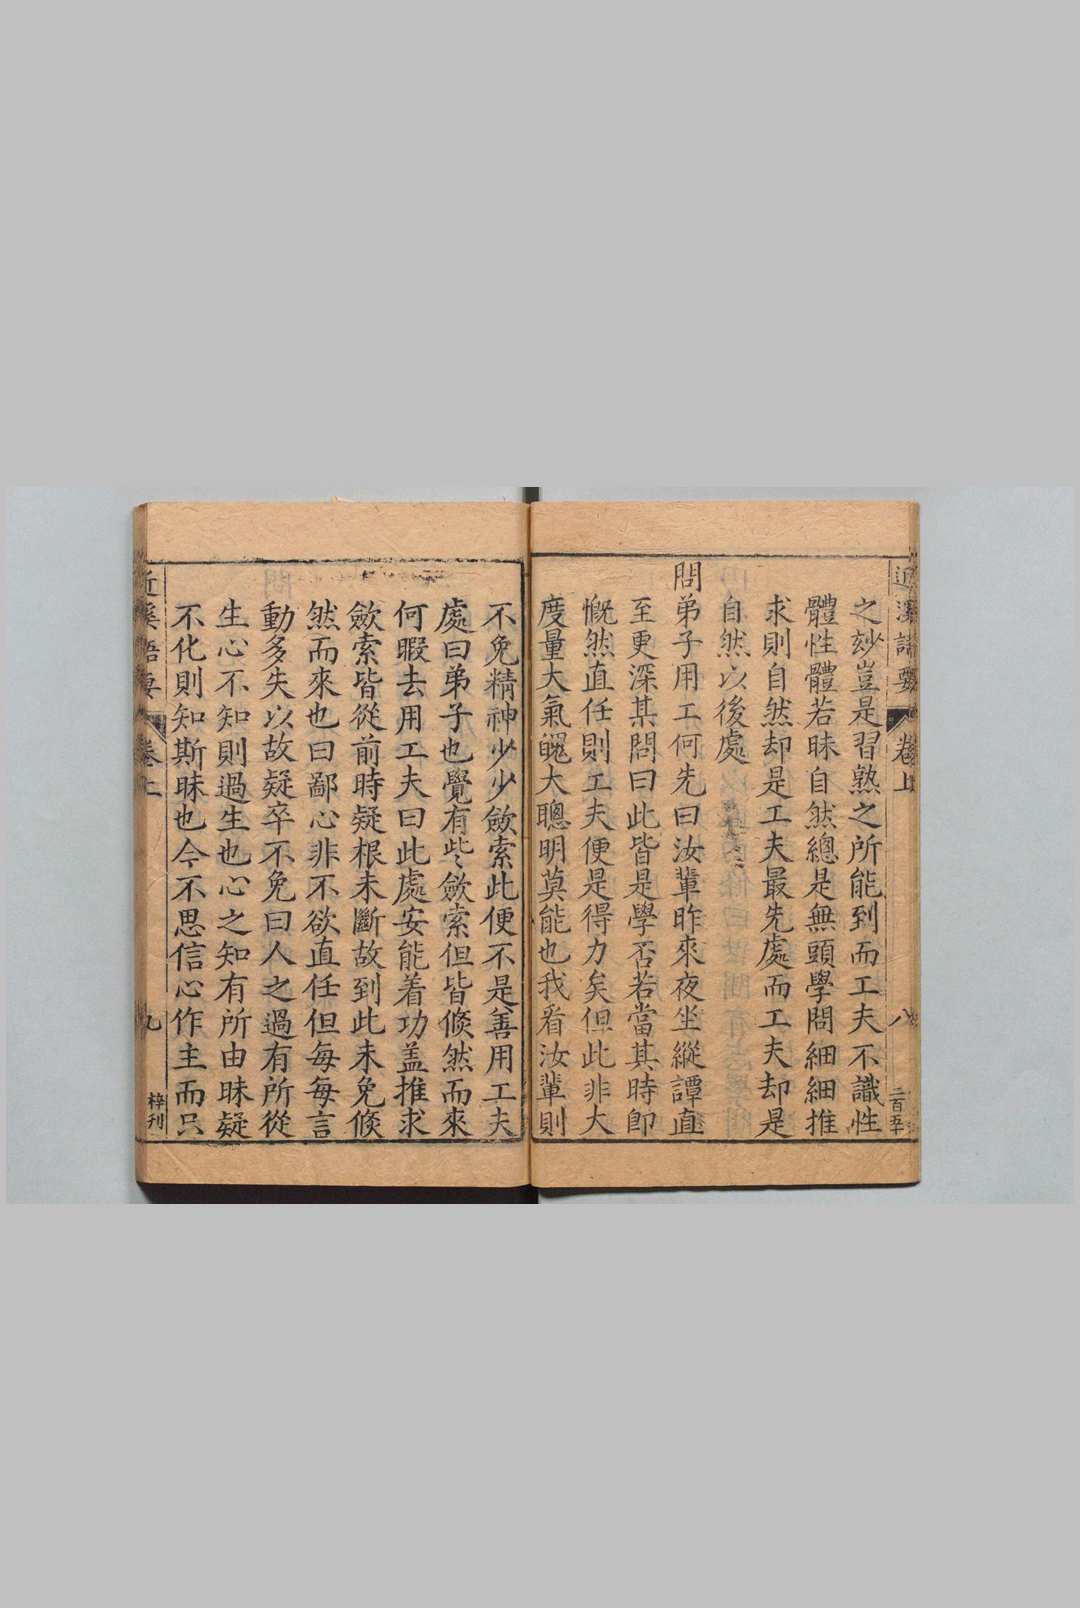 近溪語要
卷上
八
之玅豈是習熟之所能到而工夫不識性
體性體若昧自然總是無頭學問細細推
求則自然却是工夫最先處而工夫却是
自然以後處
問弟子用工何先曰汝輩昨來夜坐縱譚直
至更深其問曰此皆是學否若當其時即
慨然直任則工夫便是得力矣但此非大
度量大氣魄大聰明莫能也我看汝輩則
不免精神少少歛索此便不是善用工夫
處曰弟子也覺有些歛索但皆倐然而來
何暇去用工夫曰此處安能着功盖推求
歛索皆從前時疑根未斷故到此未免倐
然而來也曰鄙心非不欲直任但每每言
動多失以故疑卒不免曰人之過有所從
生心不知則過生也心之知有所由昧疑
不化則知斯昧也今不思信心作主而只
近溪語要
卷上
九
梓刊